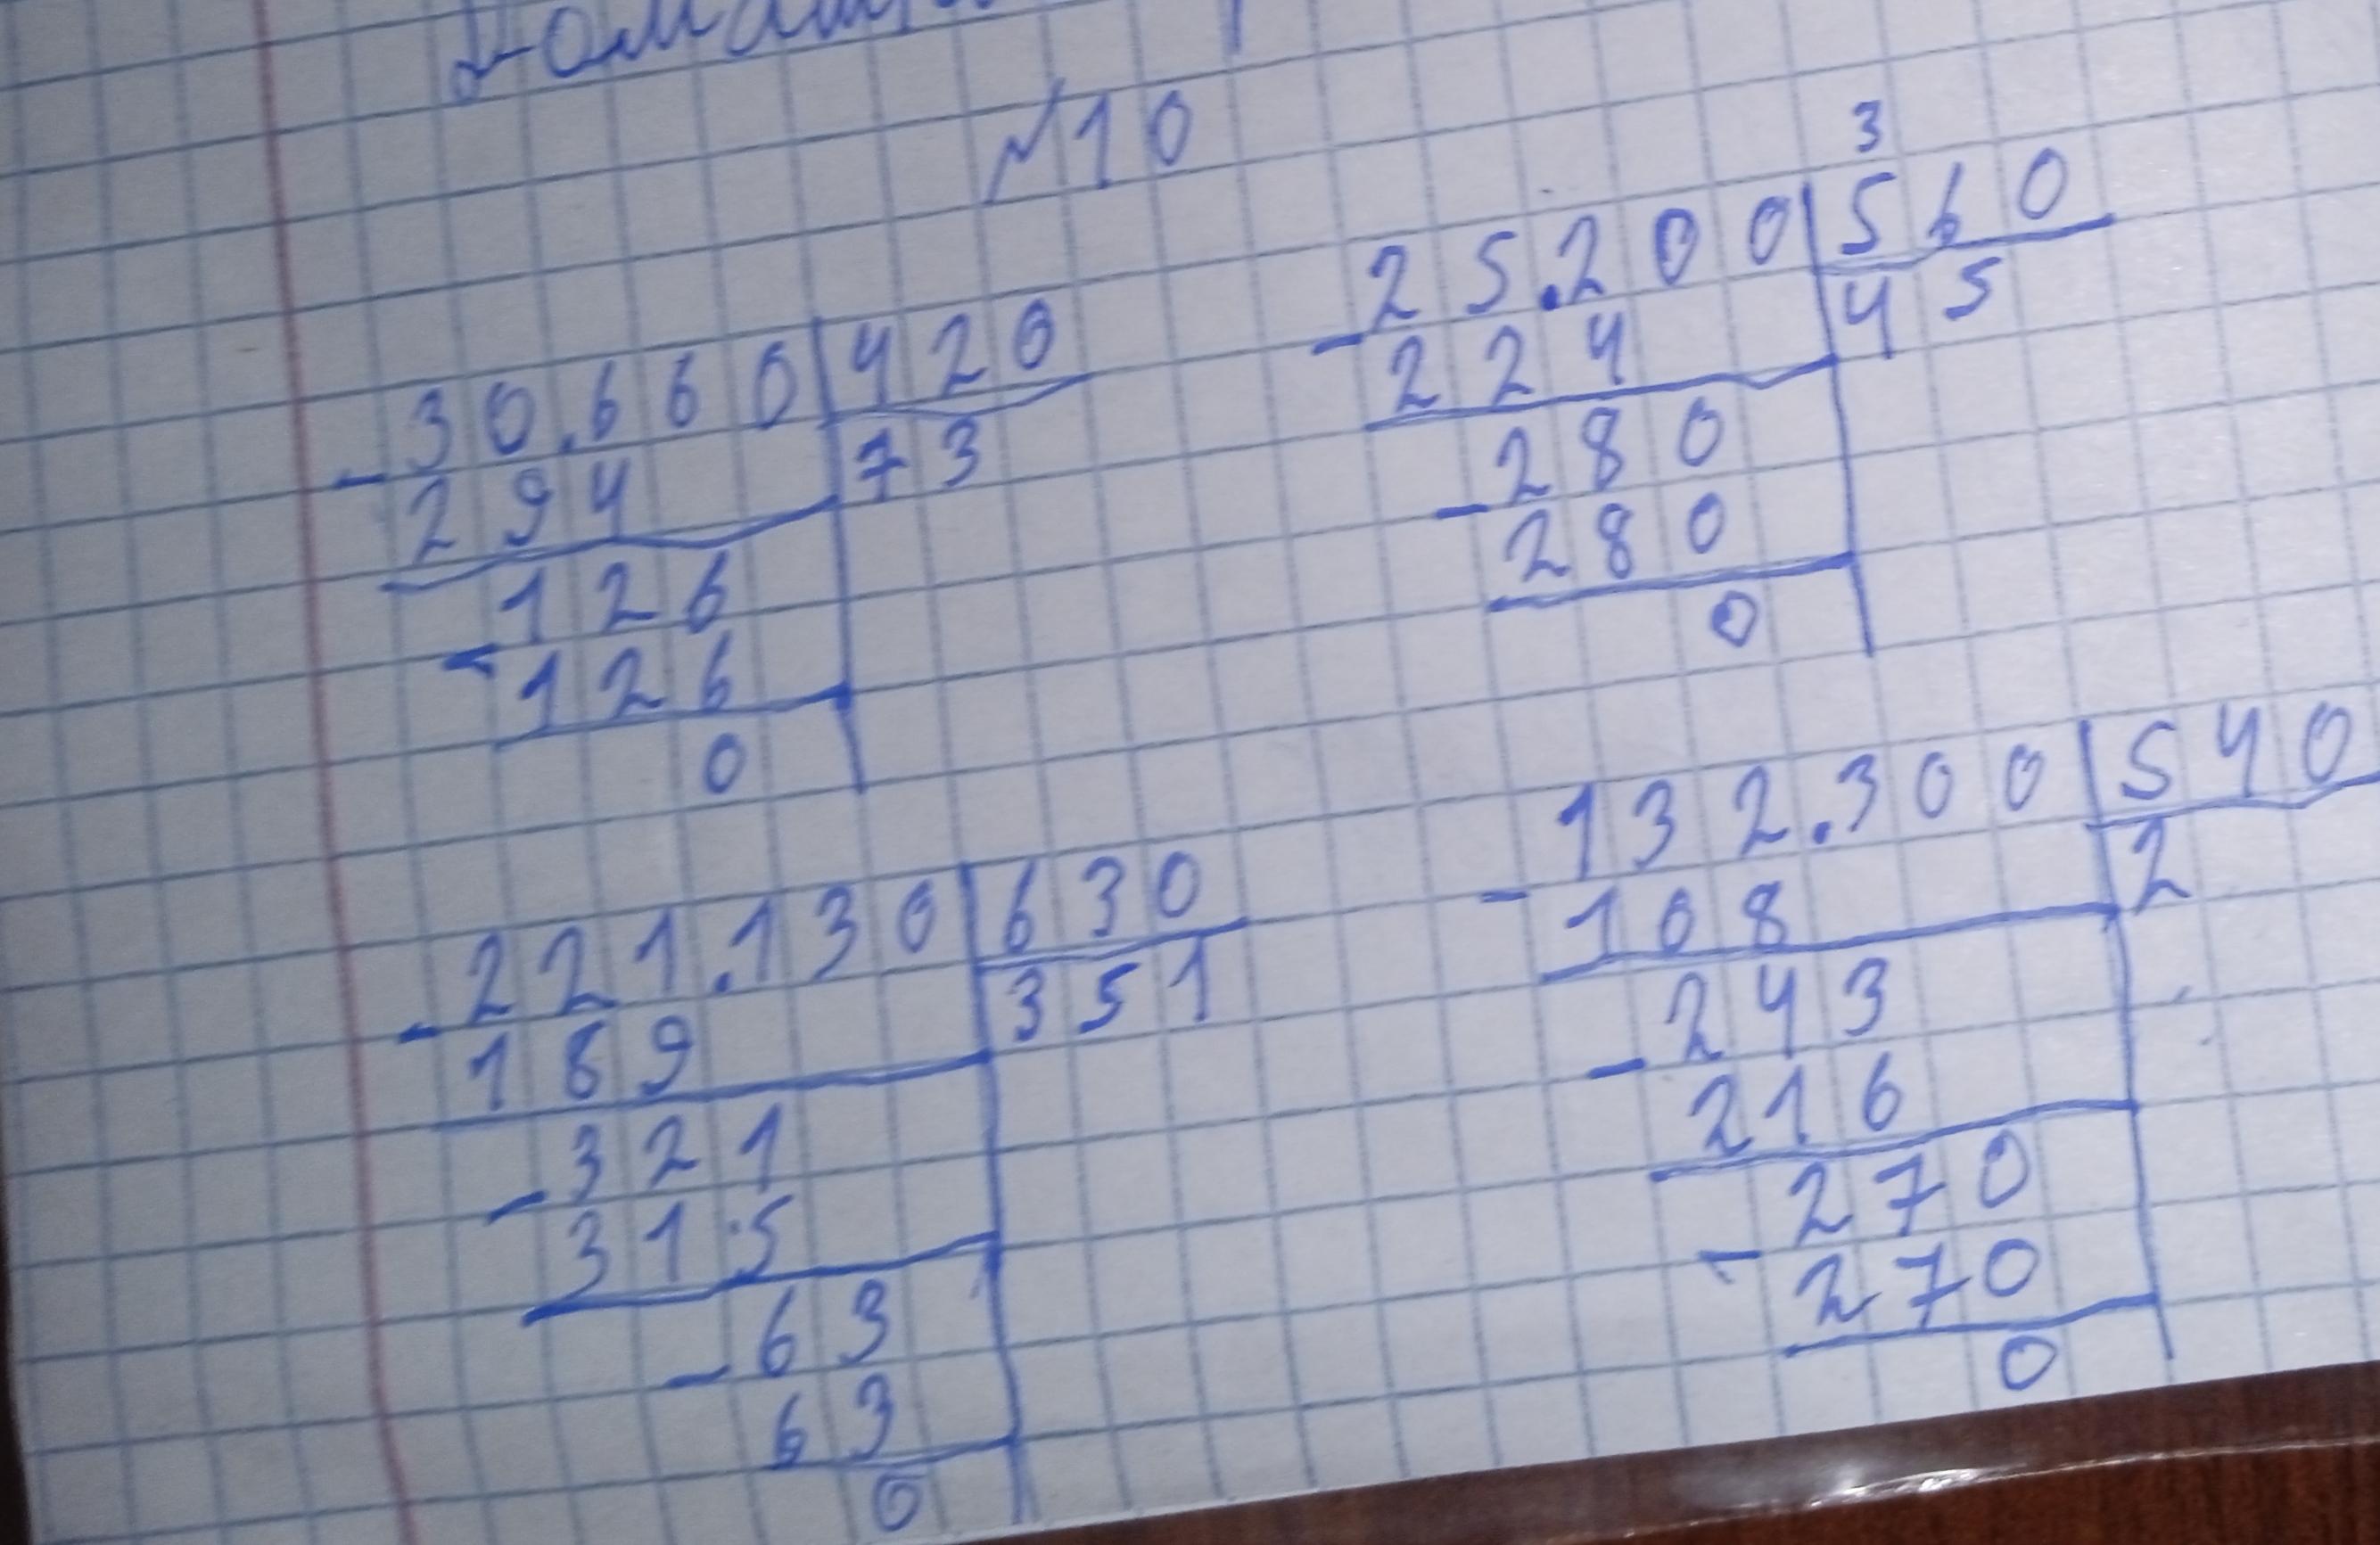 №10
30.660 420
- 294 73
126
- 126
0
3
25.200 560
- 224 45
280
- 280
0
221.130 630
- 189 351
321
- 315
63
- 63
0
132.300 540
- 108 2
243
- 216
270
- 270
0